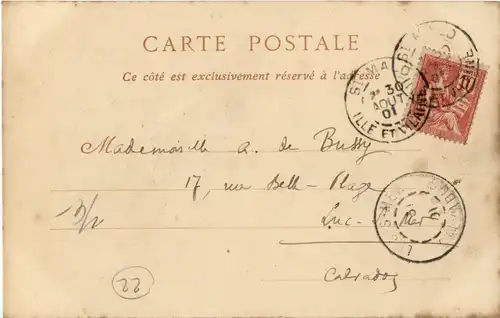 CARTE POSTALE
Ce côté est exclusivement réservé à l'adresse
ST MALO
30
AOUT
01
ILLE ET VILAINE
10
Mademoiselle A. de Bussy
17, rue Belle-Plage
Luc-s/Mer
Calvados
22